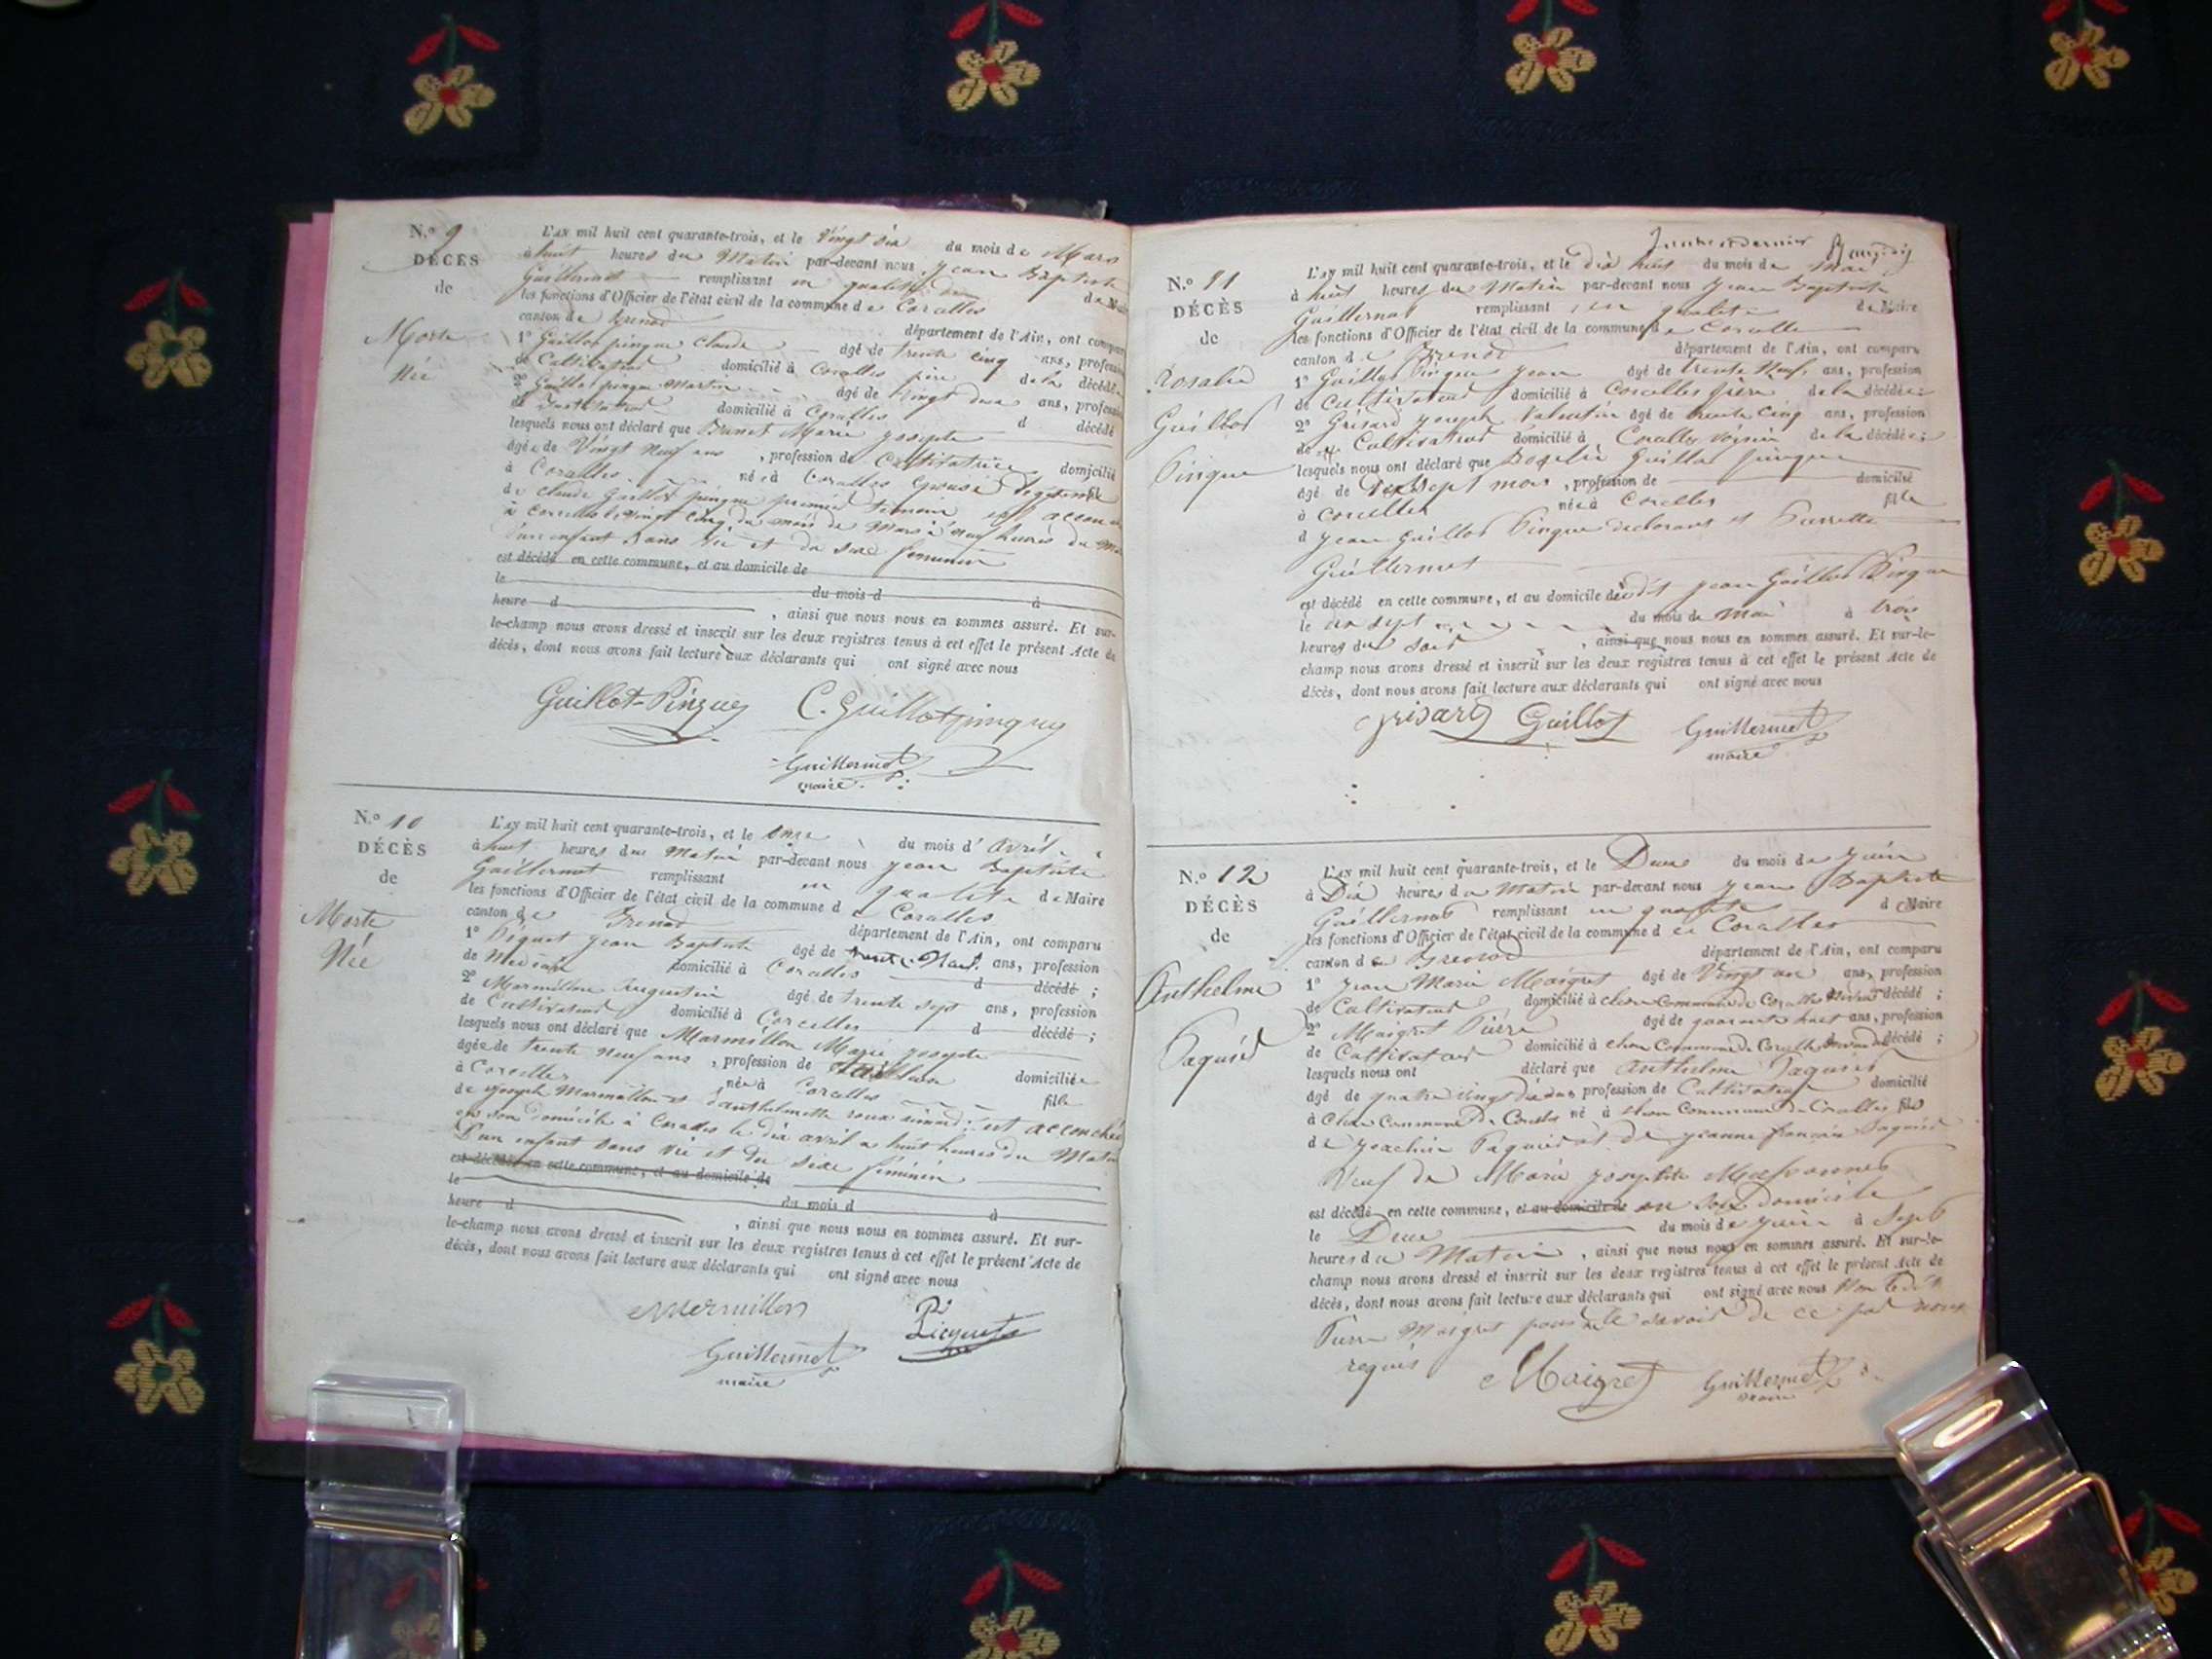 N.º 9
DÉCÈS
de
Morte
Née
L'AN mil huit cent quarante-trois, et le Vingt six du mois de Mars
à huit heures du Matin par-devant nous Jean Baptiste
Guillermet remplissant en qualité de Maire
les fonctions d'Officier de l'état civil de la commune de Corcelles
canton de Brenod département de l'Ain, ont comparu
1º Guillot pingue Claude âgé de trente cinq ans, profession
de Cultivateur domicilié à Corcelles père de la décédée
2º Guillot pingue Martin âgé de vingt deux ans, profession
de Instituteur domicilié à Corcelles d décédé
lesquels nous ont déclaré que Brunet Marie Josephe
âgée de Vingt neuf ans, profession de Cultivatrice domicilié
à Corcelles née à Corcelles Epouse légitime
de Claude Guillot pingue premier témoin est accouchée
à Corcelles le vingt cinq du mois de Mars à neuf heures du
d'un enfant sans vie et du sexe feminin
est décédé en cette commune, et au domicile de
le du mois d à
heure d , ainsi que nous nous en sommes assuré. Et sur-
le-champ nous avons dressé et inscrit sur les deux registres tenus à cet effet le présent Acte de
décès, dont nous avons fait lecture aux déclarants qui ont signé avec nous
Guillot-Pingue C. Guillotpingue
Guillermet
maire
N.º 10
DÉCÈS
de
Morte
Née
L'AN mil huit cent quarante-trois, et le onze du mois d'avril
à huit heures du Matin par-devant nous Jean Baptiste
Guillermet remplissant en qualité de Maire
les fonctions d'Officier de l'état civil de la commune de Corcelles
canton de Brenod département de l'Ain, ont comparu
1º Piquet Jean Baptiste âgé de trente Neuf ans, profession
de Medecin domicilié à Corcelles d décédé ;
2º Marmillon Augustin âgé de trente sept ans, profession
de Cultivateur domicilié à Corcelles d décédé ;
lesquels nous ont déclaré que Marmillon Marie Josephe
âgée de trente neuf ans, profession de domiciliée
à Corcelles née à Corcelles fille
de Joseph Marmillon et d'anthelmette est accouchée
en son domicile à Corcelles le dix avril a huit heures du Matin
D'un enfant sans vie et du sexe féminin
est décédé en cette commune, et au domicile de
le
heure d du mois d à
, ainsi que nous nous en sommes assuré. Et sur-
le-champ nous avons dressé et inscrit sur les deux registres tenus à cet effet le présent Acte de
décès, dont nous avons fait lecture aux déclarants qui ont signé avec nous
Mermillon Picquet
Guillermet
maire
N.º 11
DÉCÈS
de
Rosalie
Guillot
Pingue
L'AN mil huit cent quarante-trois, et le dix huit du mois de Mai
à huit heures du Matin par-devant nous Jean Baptiste
Guillermet remplissant en qualité de Maire
les fonctions d'Officier de l'état civil de la commune de Corcelle
canton de Brenod département de l'Ain, ont comparu
1º Guillot Pingue Jean âgé de trente Neuf ans, profession
de Cultivateur domicilié à Corcelles père de la décédée ;
2º Grisard Joseph Valentin âgé de trente cinq ans, profession
de Cultivateur domicilié à Corcelles voisin de la décédée ;
lesquels nous ont déclaré que Rosalie Guillot pingue
âgé de sept mois, profession de domicilié
à Corcelles née à Corcelles fille
d Jean Guillot Pingue declarant et Pierrette
Guillermet
est décédé en cette commune, et au domicile dudit Jean Guillot Pingue
le dix sept du mois de Mai à trois
heures du soir , ainsi que nous nous en sommes assuré. Et sur-le-
champ nous avons dressé et inscrit sur les deux registres tenus à cet effet le présent Acte de
décès, dont nous avons fait lecture aux déclarants qui ont signé avec nous
Grisard Guillot Guillermet
maire
N.º 12
DÉCÈS
de
Anthelme
Paquié
L'AN mil huit cent quarante-trois, et le Deux du mois de Juin
à Dix heures du Matin par-devant nous Jean Baptiste
Guillermet remplissant en qualité de Maire
les fonctions d'Officier de l'état civil de la commune de Corcelles
canton de Brenod département de l'Ain, ont comparu
1º Jean Marie Maigret âgé de Vingt ans, profession
de Cultivateur domicilié à Commune de Corcelles décédé ;
2º Maigret Pierre âgé de quarante huit ans, profession
de Cultivateur domicilié à Commune de Corcelles décédé ;
lesquels nous ont déclaré que Anthelme Paquié
âgé de quatre vingt profession de Cultivateur domicilié
à Commune De Corcelles né à Commune de Corcelles fils
de Joachim Paquié et de Jeanne françoise Paquié
Veuf de Marie Josephte
est décédé en cette commune, et au domicile de en son Domicile
le Deux du mois de Juin à Sept
heures du Matin , ainsi que nous nous en sommes assuré. Et sur-le-
champ nous avons dressé et inscrit sur les deux registres tenus à cet effet le présent Acte de
décès, dont nous avons fait lecture aux déclarants qui ont signé avec nous Non ledit
Pierre Maigret pour ne le savoir de ce par nous
requis Maigret Guillermet
maire